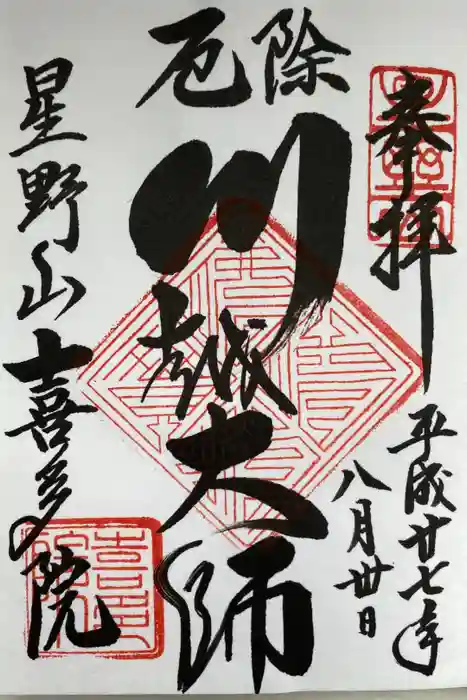 奉拝
平成廿七年
八月卅日
厄除
川越大師
星野山喜多院